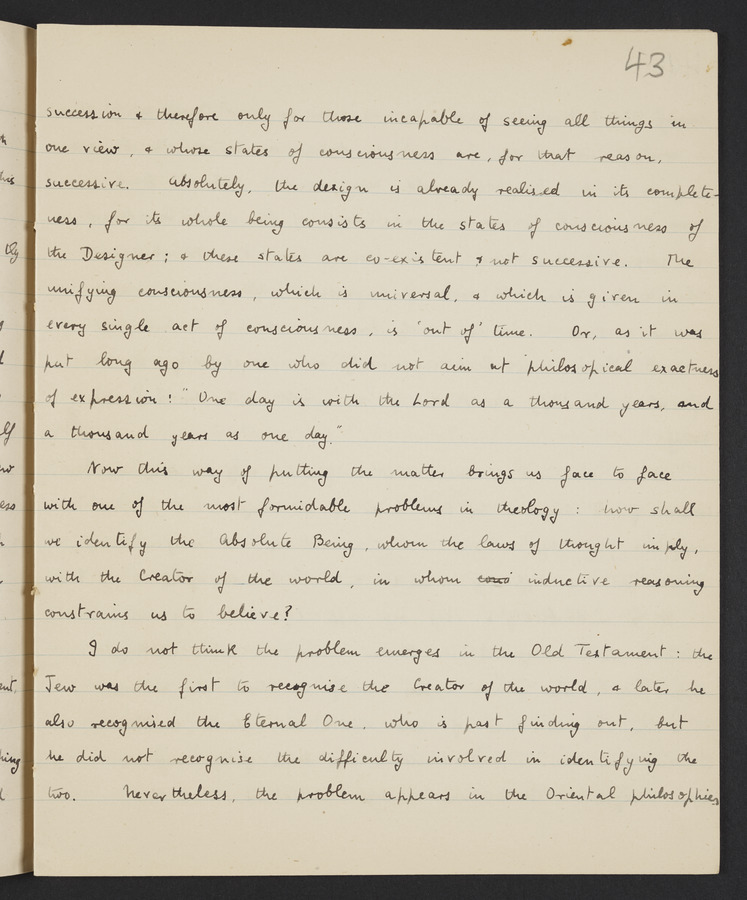 43
succession & therefore only for those incapable of seeing all things in
one view, & whose states of consciousness are, for that reason,
successive. Absolutely, the design is already realised in its complete-
ness, for its whole being consists in the states of consciousness of
the Designer; & these states are co-existent & not successive. The
unifying consciousness, which is universal, & which is given in
every single act of consciousness, is 'out of' time. Or, as it was
put long ago by one who did not aim at philosopical exactness
of expression! "One day is with the Lord as a thousand years, and
a thousand years as one day."
Now this way of putting the matter brings us face to face
with one of the most formidable problems in theology: how shall
we identify the Absolute Being, whom the laws of thought imply,
with the Creator of the world, in whom inductive reasoning
constrains us to believe?
I do not think the problem emerges in the Old Testament: the
Jew was the first to recognise the Creator of the world, & later he
also recognised the Eternal One, who is past finding out, but
he did not recognise the difficulty involved in identifying the
two. Nevertheless, the problem appears in the Oriental philosophies